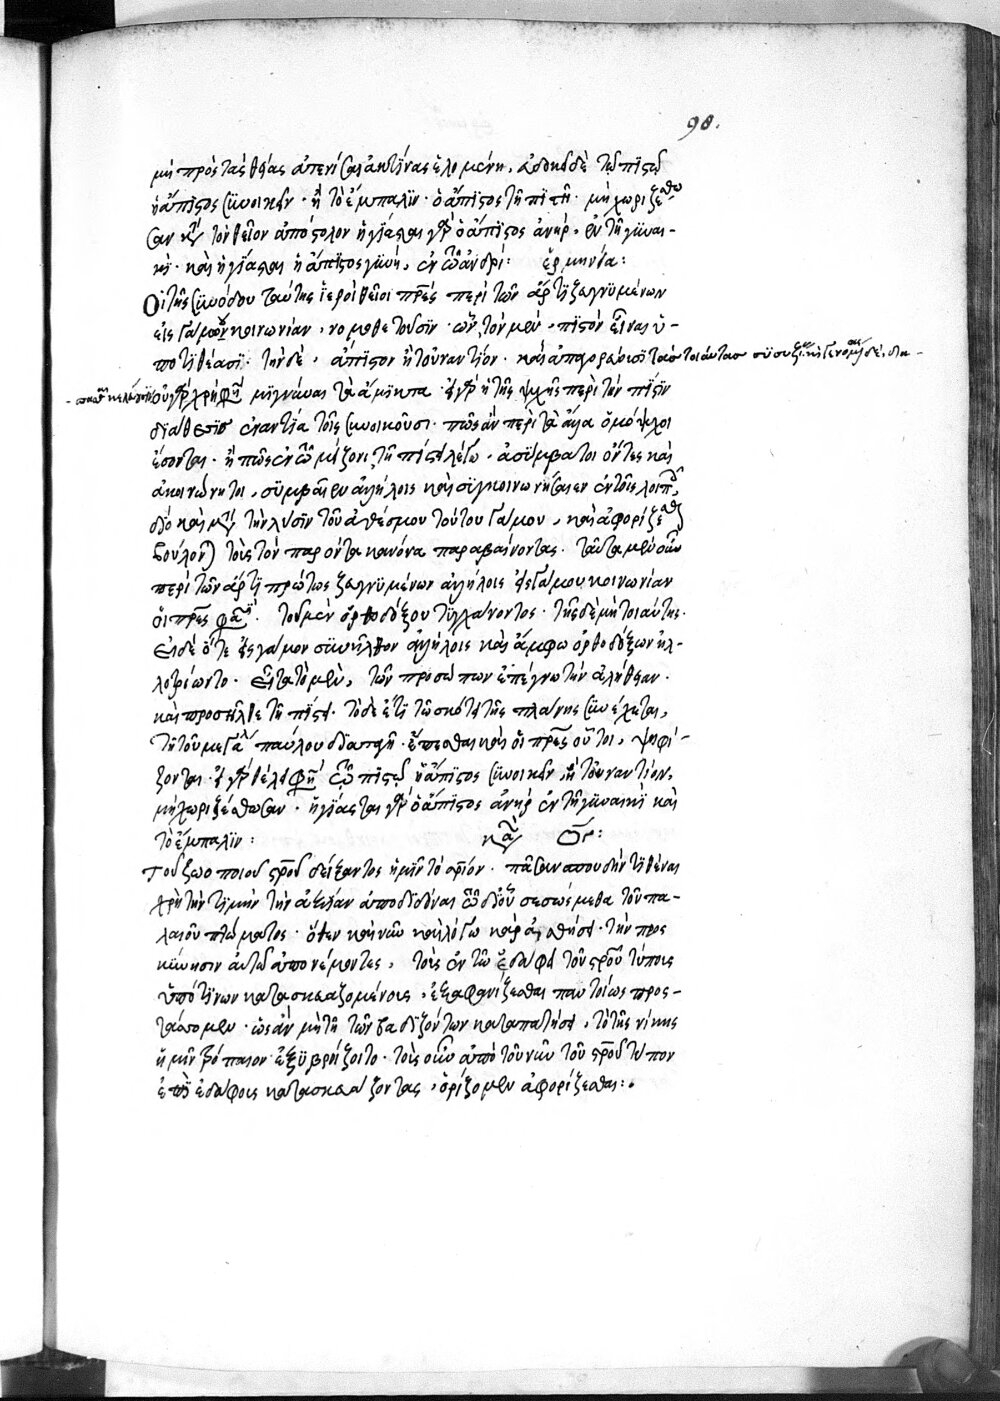 98.
μὴ πρὸς τὰς θείας ἀτενίσαι ἀκτῖνας ἑλομένη. εὐδοκεῖ δὲ τῷ πιστῷ
ἡ ἄπιστος συνοικεῖν· ἢ τὸ ἔμπαλιν· ὁ ἄπιστος τῇ πιστῇ· μὴ χωριζέσθω
σαν κατὰ τὸν θεῖον ἀπόστολον ἡγίασται γὰρ ὁ ἄπιστος ἀνὴρ, ἐν τῇ γυναι-
κί· καὶ ἡγίασται ἡ ἄπιστος γυνὴ, ἐν τῷ ἀνδρί: ἑρμηνεία:
Οἱ τῆς συνόδου ταύτης ἱεροὶ θεῖοι πρες περὶ τῶν ἄρτι ζευγνυμένων
εἰς γάμου κοινωνίαν, νομοθετοῦσιν· ὧν τὸν μὲν, πιστὸν εἶναι ὑ-
ποτίθεασι· τὴν δὲ, ἄπιστον ἢ τοὐναντίον· καὶ ἀπαγορεύουσι τὰς τοιαύτας συζυγίας· εἰ γενόμεναι δὲ, δια-
σπᾶν κελεύουσιν οὐ γὰρ χρή φησι μιγνύναι τὰ ἄμικτα· εἰ γὰρ ἡ τῆς ψυχῆς περὶ τὴν πίστιν
διάθεσις ἐναντία τοῖς συνοικοῦσι· πῶς ἂν περὶ τὰ ἄλλα ὁμόψυχοι
ἔσονται· ἢ πῶς ἐν τῷ μείζονι, τῇ πίστει λέγω, ἀσύμβατοι ὄντες καὶ
ἀκοινώνητοι, συμβαῖεν ἀλλήλοις καὶ συγκοινωνήσαιεν ἐν τοῖς λοιποῖς,
διὸ καὶ μετὰ τὴν λύσιν τοῦ ἀθέσμου τούτου γάμου, καὶ ἀφορίζεσθαι
βούλονται τοὺς τὸν παρόντα κανόνα παραβαίνοντας· ταῦτα μὲν οὖν
περὶ τῶν ἄρτι πρώτως ζευγνυμένων ἀλλήλοις εἰς γάμου κοινωνίαν
οἱ πρες φασι· τοῦ μὲν ὀρθοδόξου τυγχάνοντος· τῆς δὲ μὴ τοιαύτης.
Εἰ δὲ ὅτε εἰς γάμον συνῆλθον ἀλλήλοις καὶ ἄμφω ὀρθοδόξων ἠλ-
λοτρίωντο· εἶτα τὸ μὲν, τῶν προσώπων ἐπέγνω τὴν ἀλήθειαν·
καὶ προσῆλθε τῇ πίστει· τὸ δὲ ἔτι τῷ σκότει τῆς πλάνης συνέχεται,
τῇ τοῦ μεγάλου παύλου διαταγῇ· ἕπεσθαι καὶ οἱ πρες οὗτοι, ψηφί-
ζονται· εἰ γὰρ θέλει φησὶ τῷ πιστῷ ἡ ἄπιστος συνοικεῖν, ἢ τοὐναντίον,
μὴ χωριζέσθωσαν· ἡγίασται γὰρ ὁ ἄπιστος ἀνὴρ ἐν τῇ γυναικὶ καὶ
τὸ ἔμπαλιν: κανὼν ογ:
Τοῦ ζωοποιοῦ σροῦ δείξαντος ἡμῖν τὸ σριον, πᾶσαν σπουδὴν τιθέναι
χρὴ τὴν τιμὴν τὴν ἀξίαν ἀποδιδόναι τῷ δι' οὗ σεσώσμεθα τοῦ πα-
λαιοῦ πτώματος· ὅθεν καὶ νῷ καὶ λόγῳ καὶ αἰσθήσει· τὴν προς
κύνησιν αὐτῷ ἀπονέμοντες, τοὺς ἐν τῷ ἐδάφει τοῦ σροῦ τύπους
ὑπό τινων κατασκευαζομένους, ἐξαφανίζεσθαι παντοίως προς-
τάσσομεν· ὡς ἂν μὴ τῇ τῶν βαδιζόντων καταπατήσει, τὸ τῆς νίκης
ἡμῖν τρόπαιον ἐξυβρίζοιτο· τοὺς οὖν ἀπὸ τοῦ νῦν τοῦ σροῦ τύπον
ἐπὶ ἐδάφους κατασκευάζοντας, ὁρίζομεν ἀφορίζεσθαι: